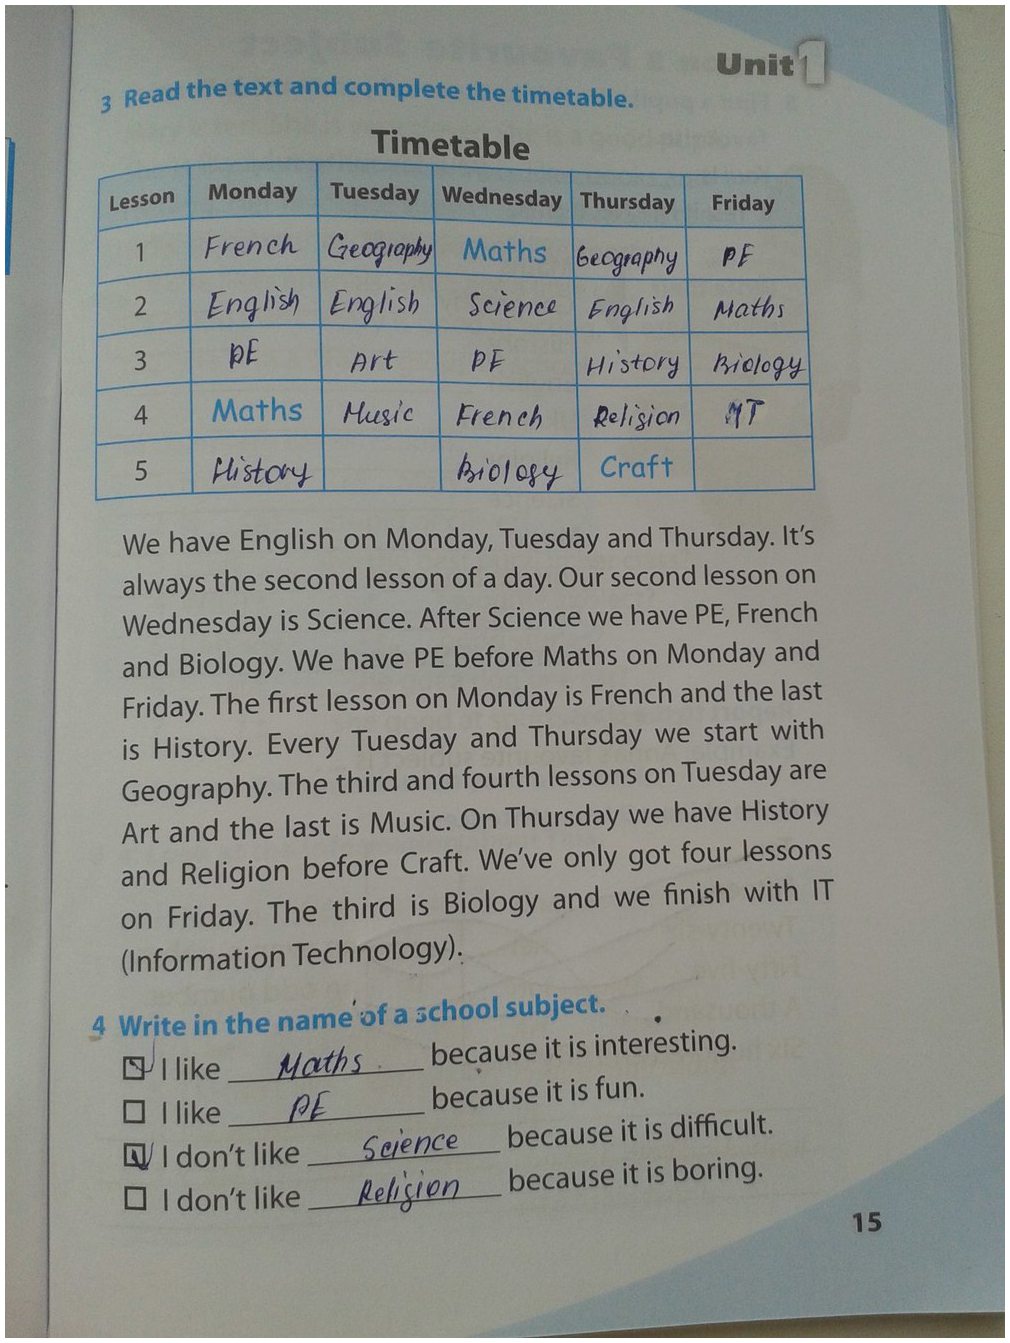 Unit 1
3 Read the text and complete the timetable.
Timetable
Lesson Monday Tuesday Wednesday Thursday Friday
1 French Geography Maths Geography PE
2 English English Science English Maths
3 PE Art PE History Biology
4 Maths Music French Religion IT
5 History Biology Craft
We have English on Monday, Tuesday and Thursday. It's
always the second lesson of a day. Our second lesson on
Wednesday is Science. After Science we have PE, French
and Biology. We have PE before Maths on Monday and
Friday. The first lesson on Monday is French and the last
is History. Every Tuesday and Thursday we start with
Geography. The third and fourth lessons on Tuesday are
Art and the last is Music. On Thursday we have History
and Religion before Craft. We've only got four lessons
on Friday. The third is Biology and we finish with IT
(Information Technology).
4 Write in the name of a school subject.
I like Maths because it is interesting.
I like PE because it is fun.
I don't like Science because it is difficult.
I don't like Religion because it is boring.
15